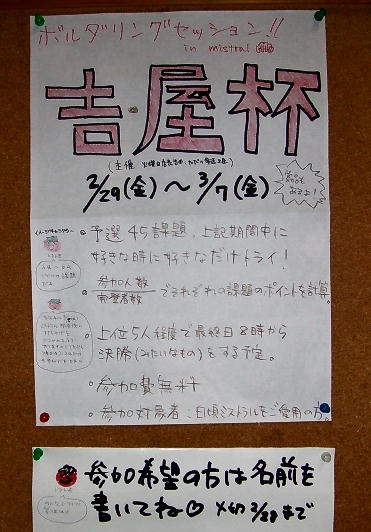 ボルダリングセッション!!
in mistral
吉屋杯
2/29(金)～3/7(金)
賞品も
あるよ!
・予選45課題、上記期間中に
好きな時に好きなだけトライ!
・参加人数/完登者数 でそれぞれの課題のポイントを計算。
・上位5人程度で最終日8時から
決勝(みたいなもの)をする予定。
・参加費無料
・参加対象者:日頃ミストラルをご愛用の方。
参加希望の方は名前を
書いてね♡ 〆切 2/28まで